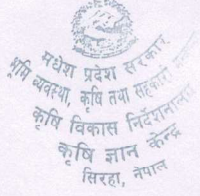 मधेश प्रदेश सरकार
भूमि व्यवस्था, कृषि तथा सहकारी
कृषि विकास निर्देशनालय
कृषि ज्ञान केन्द्र
सिरहा, नेपाल